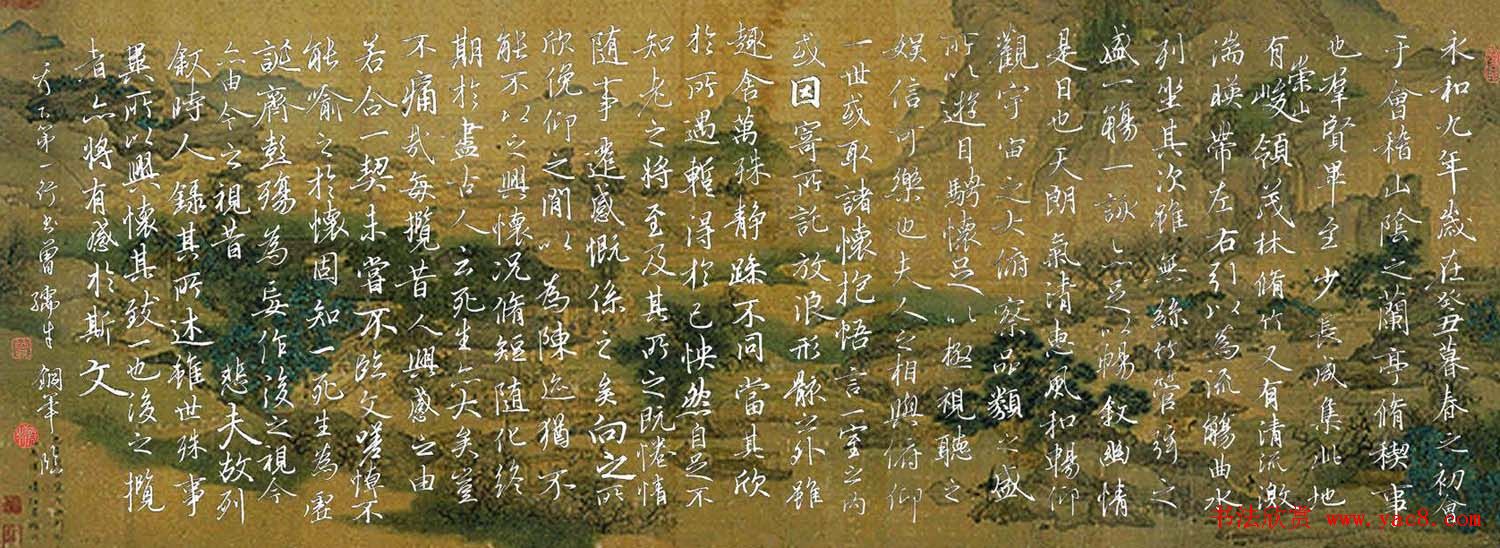 永和九年歲在癸丑暮春之初會
于會稽山陰之蘭亭脩稧事
也羣賢畢至少長咸集此地
有崇山峻領茂林脩竹又有清流激
湍暎帶左右引以為流觴曲水
列坐其次雖無絲竹管弦之
盛一觴一詠亦足以暢敘幽情
是日也天朗氣清惠風和暢仰
觀宇宙之大俯察品類之盛
所以遊目騁懷足以極視聽之
娛信可樂也夫人之相與俯仰
一世或取諸懷抱悟言一室之內
或因寄所託放浪形骸之外雖
趣舍萬殊靜躁不同當其欣
於所遇暫得於己怏然自足不
知老之將至及其所之既惓情
隨事遷感慨係之矣向之所
欣俛仰之閒以為陳迹猶不
能不以之興懷況脩短隨化終
期於盡古人云死生亦大矣豈
不痛哉每攬昔人興感之由
若合一契未嘗不臨文嗟悼不
能喻之於懷固知一死生為虛
誕齊彭殤為妄作後之視今
亦由今之視昔 悲夫故列
敘時人錄其所述雖世殊事
異所以興懷其致一也後之攬
者亦將有感於斯文
天下第一行書 鋼筆臨
书法欣赏 www.yac8.com